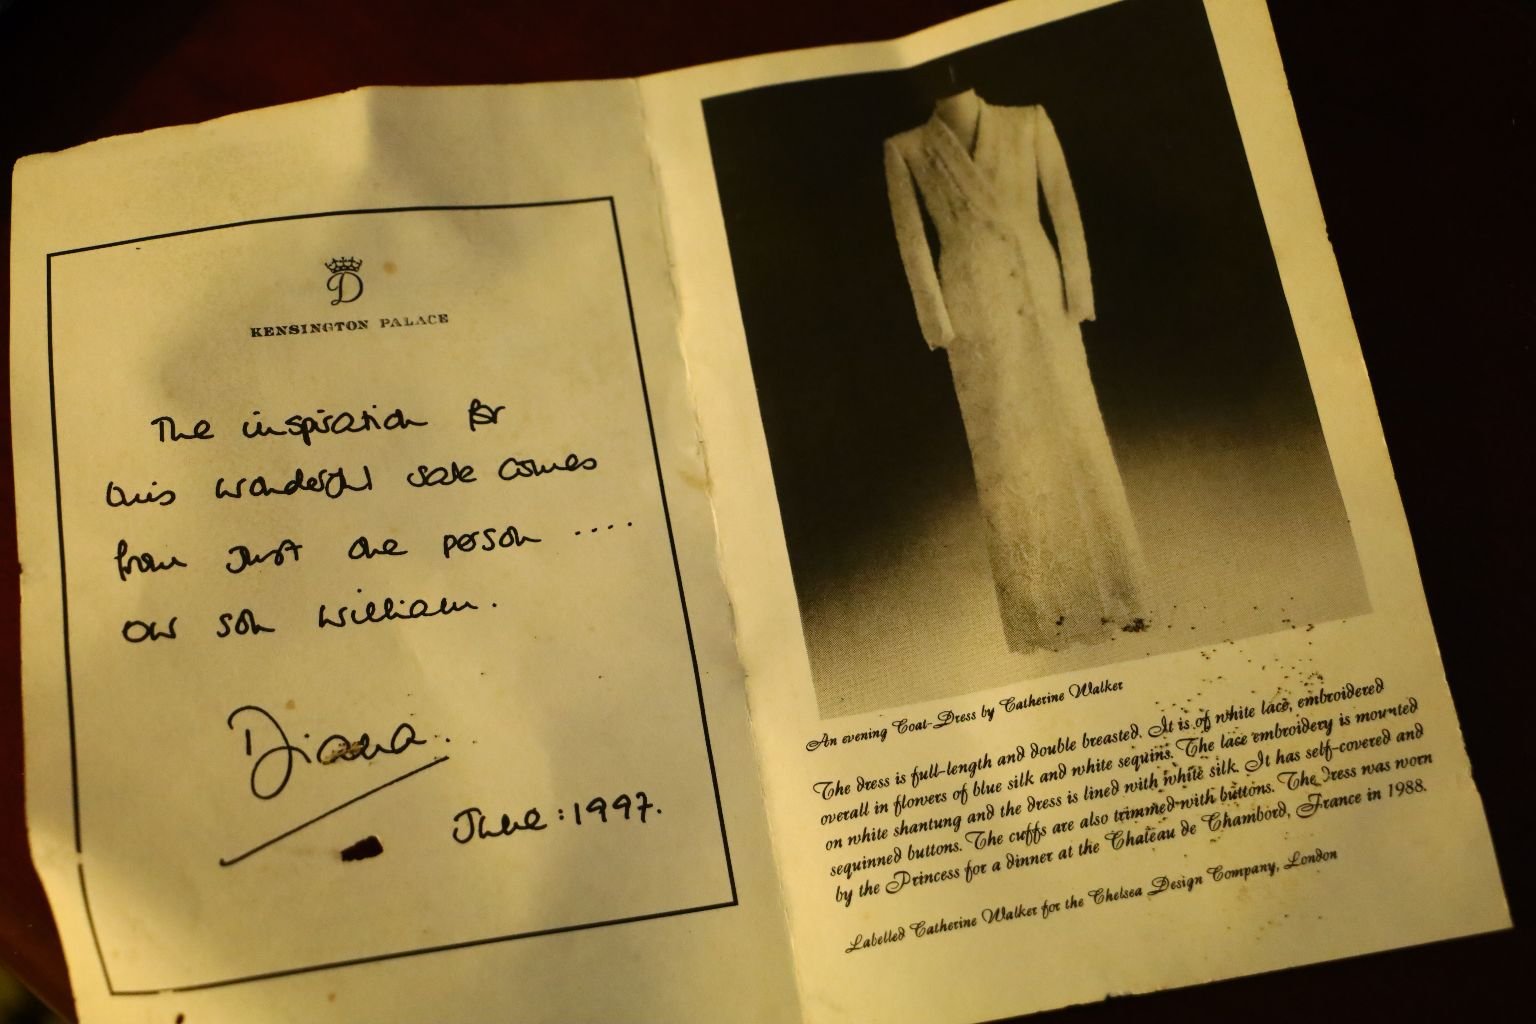 D
KENSINGTON PALACE
The inspiration for
this wonderful sale comes
from just one person ....
our son William.
Diana.
June: 1997.
An evening Coat-Dress by Catherine Walker
The dress is full-length and double breasted. It is of white lace, embroidered
overall in flowers of blue silk and white sequins. The lace embroidery is mounted
on white shantung and the dress is lined with white silk. It has self-covered and
sequinned buttons. The cuffs are also trimmed with buttons. The dress was worn
by the Princess for a dinner at the Chateau de Chambord, France in 1988.
Labelled Catherine Walker for the Chelsea Design Company, London